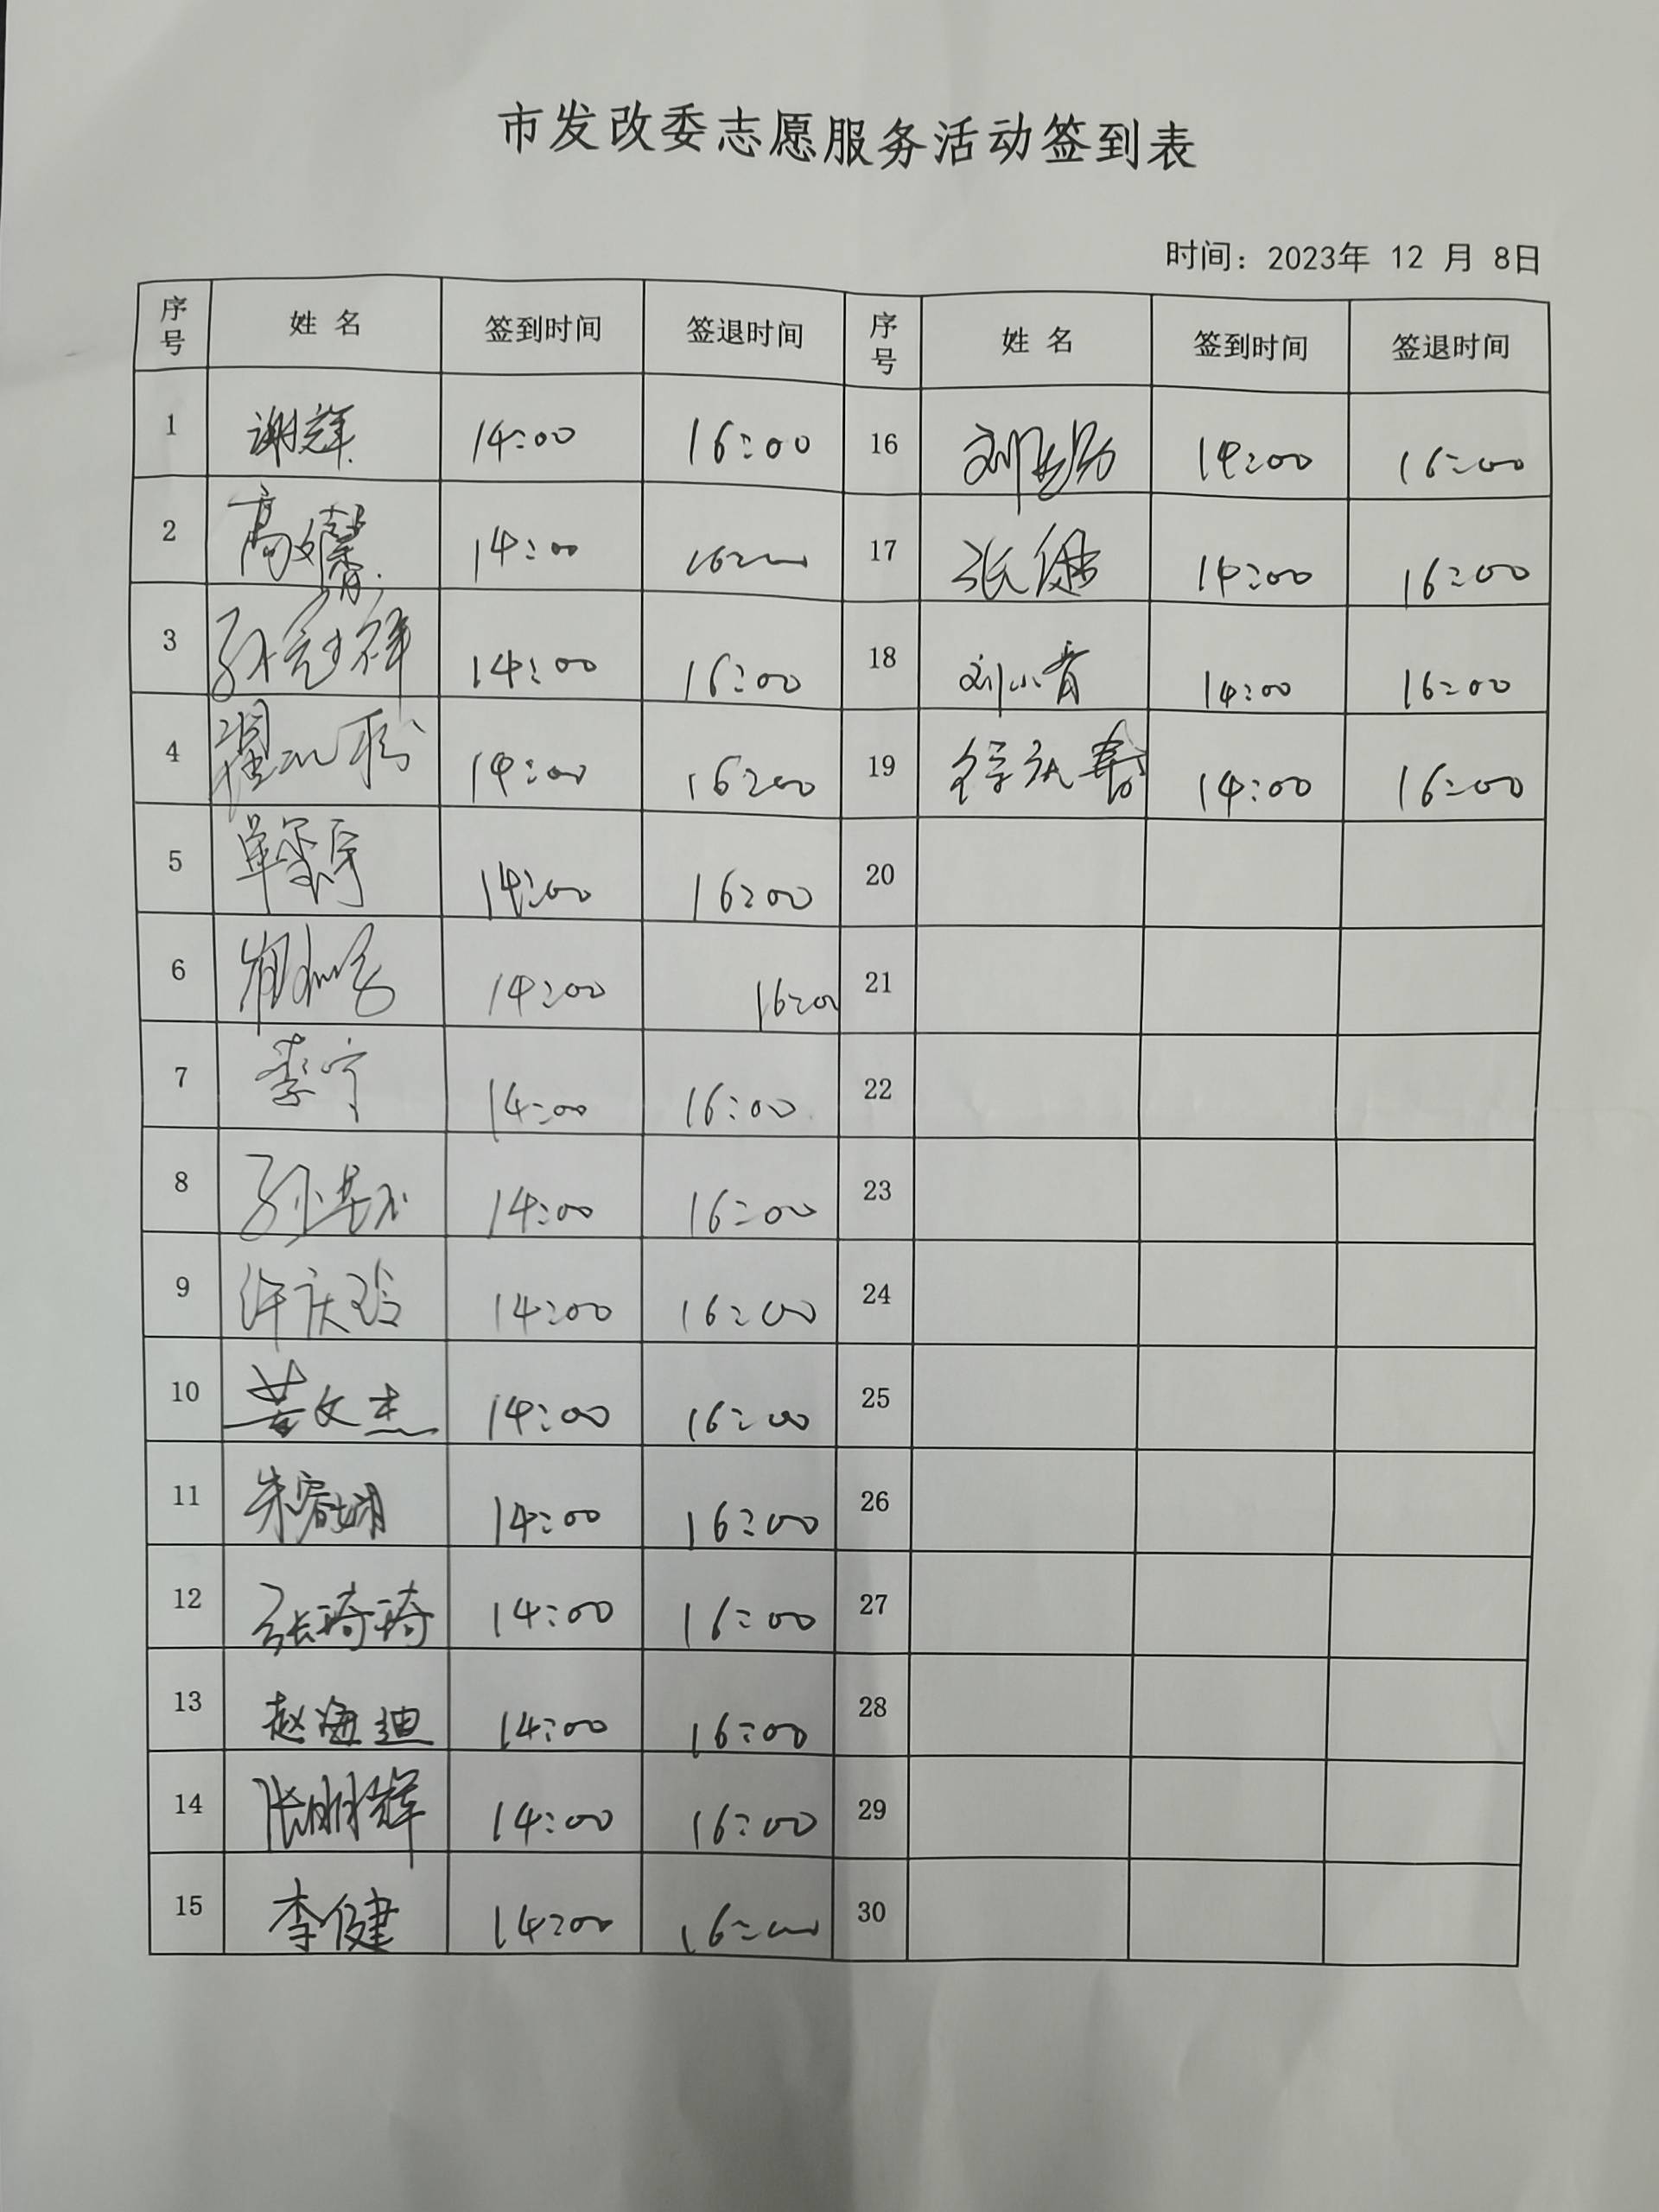 市发改委志愿服务活动签到表
时间：2023年 12 月 8日
序号 姓 名 签到时间 签退时间 序号 姓 名 签到时间 签退时间
1 谢辉 14:00 16:00 16 刘 14:00 16:00
2 高馨 14:00 16:00 17 张健 14:00 16:00
3 孙祥 14:00 16:00 18 刘小青 14:00 16:00
4 翟 14:00 16:00 19 14:00 16:00
5 单 14:00 16:00 20
6 14:00 16:00 21
7 李宁 14:00 16:00 22
8 孙 14:00 16:00 23
9 许庆玲 14:00 16:00 24
10 黄文杰 14:00 16:00 25
11 朱 14:00 16:00 26
12 张琦琦 14:00 16:00 27
13 赵海迪 14:00 16:00 28
14 张明辉 14:00 16:00 29
15 李健 14:00 16:00 30